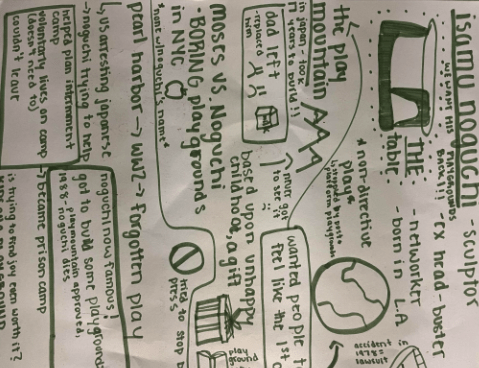 isamu noguchi
WE WANT HIS PLAYGROUNDS BACK!!!
- sculptor
- ex head-buster
- networker
- born in L.A
THE
table
the play
mountain
in japan, took
17 years to build!!
*non-directive
play*
dad left
him
never got
to see it
wanted people t
feel like the 1st
accident in
1978=
lawsuit
moses vs. Noguchi
• BORING playgrounds
in NYC
based upon unhappy
childhood & a gift
tried to stop
press
play
ground
pearl harbor → ww2 → forgotten play
↳ us arresting japanese
→ noguchi trying to help
helped plan internment
camp
voluntarily lives on camp
(doesn't need to)
couldn't leave
→ became prison camp
noguchi now famous!
got to build some playgrounds
playmountain approved,
1988- noguchi dies
is trying to
even worth it?